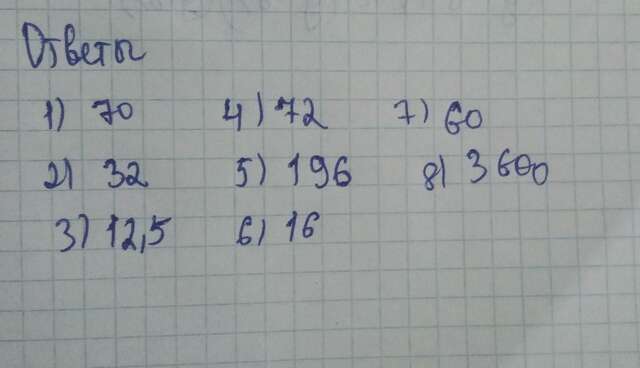 Ответы
1) 70 4) 72 7) 60
2) 32 5) 196 8) 3600
3) 12,5 6) 16